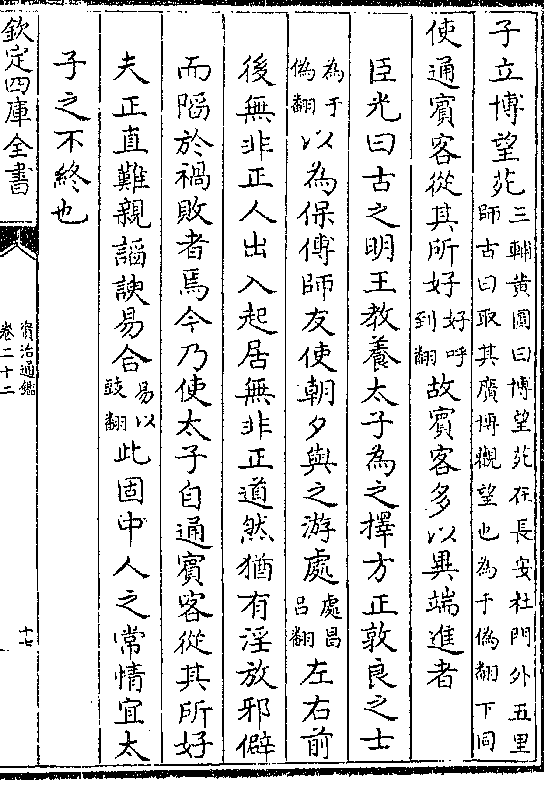 子立博望苑三輔黄圖曰博望苑在長安杜門外五里師古曰取其廣博觀望也為于偽翻下同
使通賓客從其所好好呼到翻故賓客多以異端進者
臣光曰古之明王教養太子為之擇方正敦良之士
為于偽翻以為保傅師友使朝夕與之游處處昌吕翻左右前
後無非正人出入起居無非正道然猶有淫放邪僻
而陷於禍敗者焉今乃使太子自通賓客從其所好
夫正直難親謟諛易合易以豉翻此固中人之常情宜太
子之不終也
欽定四庫全書
資治通鑑
卷二十二
十七